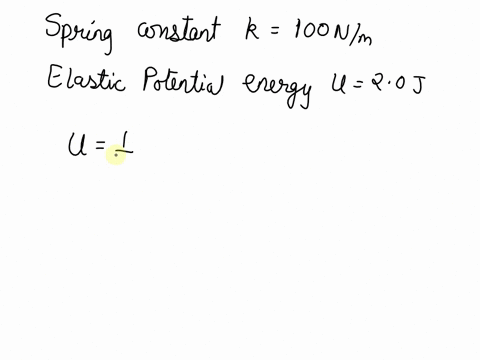 Spring constant k = 100 N/m
Elastic Potential energy U = 2.0 J
U = 1/